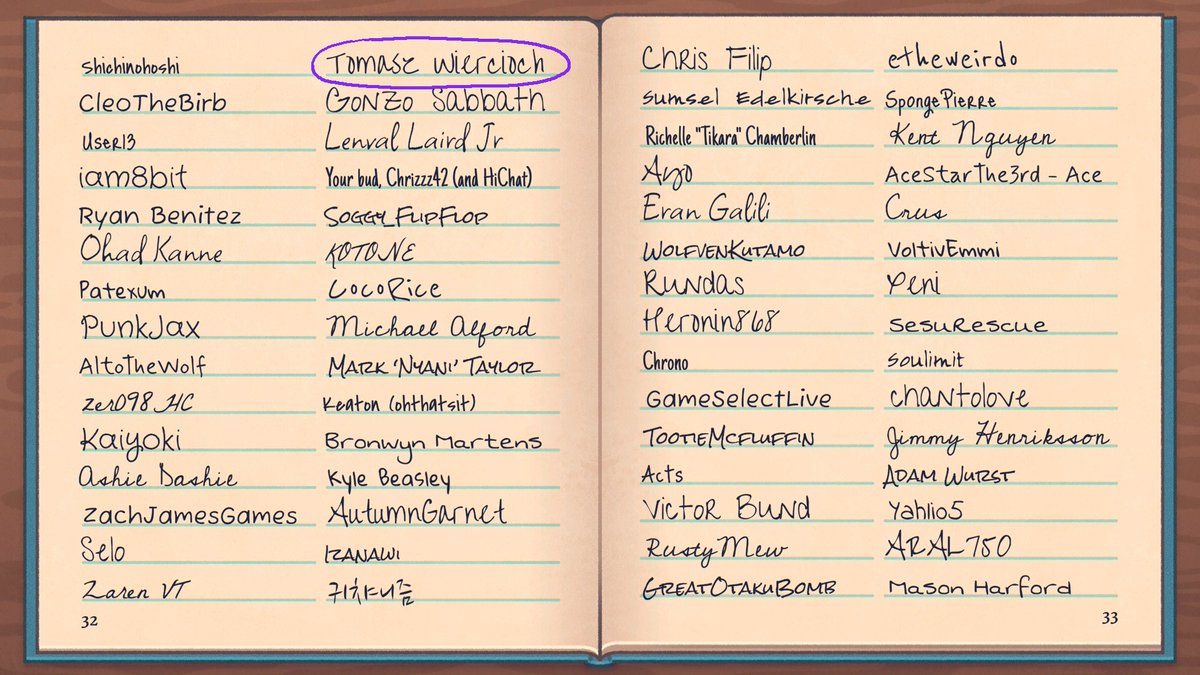 shichinohoshi
CleoTheBirb
User13
iam8bit
Ryan Benitez
Ohad Kanne
Patexum
PunkJax
AltoTheWolf
zer098_HC
Kaiyoki
Ashie Dashie
ZachJamesGames
Selo
Zaren VT
32
Tomasz Wiercioch
Gonzo Sabbath
Lenval Laird Jr
Your bud, Chrizzz42 (and HiChat)
Soggy_FlipFlop
KOTONE
CocoRice
Michael Alford
Mark 'Nyani' Taylor
Keaton (ohthatsit)
Bronwyn Martens
Kyle Beasley
AutumnGarnet
Izanawi
귀차니즘
Chris Filip
Sumsel Edelkirsche
Richelle "Tikara" Chamberlin
Ayo
Eran Galili
WolfvenKutamo
Rundas
Heronin868
Chrono
GameSelectLive
TootieMcFluffin
Acts
Victor Bund
RustyMew
GreatOtakuBomb
etheweirdo
SpongePierre
Kent Nguyen
AceStarThe3rd - Ace
Crus
VoltivEmmi
Yeni
SesuRescue
soulimit
chantolove
Jimmy Henriksson
Adam Wurst
Yahlio5
ARAL750
Mason Harford
33